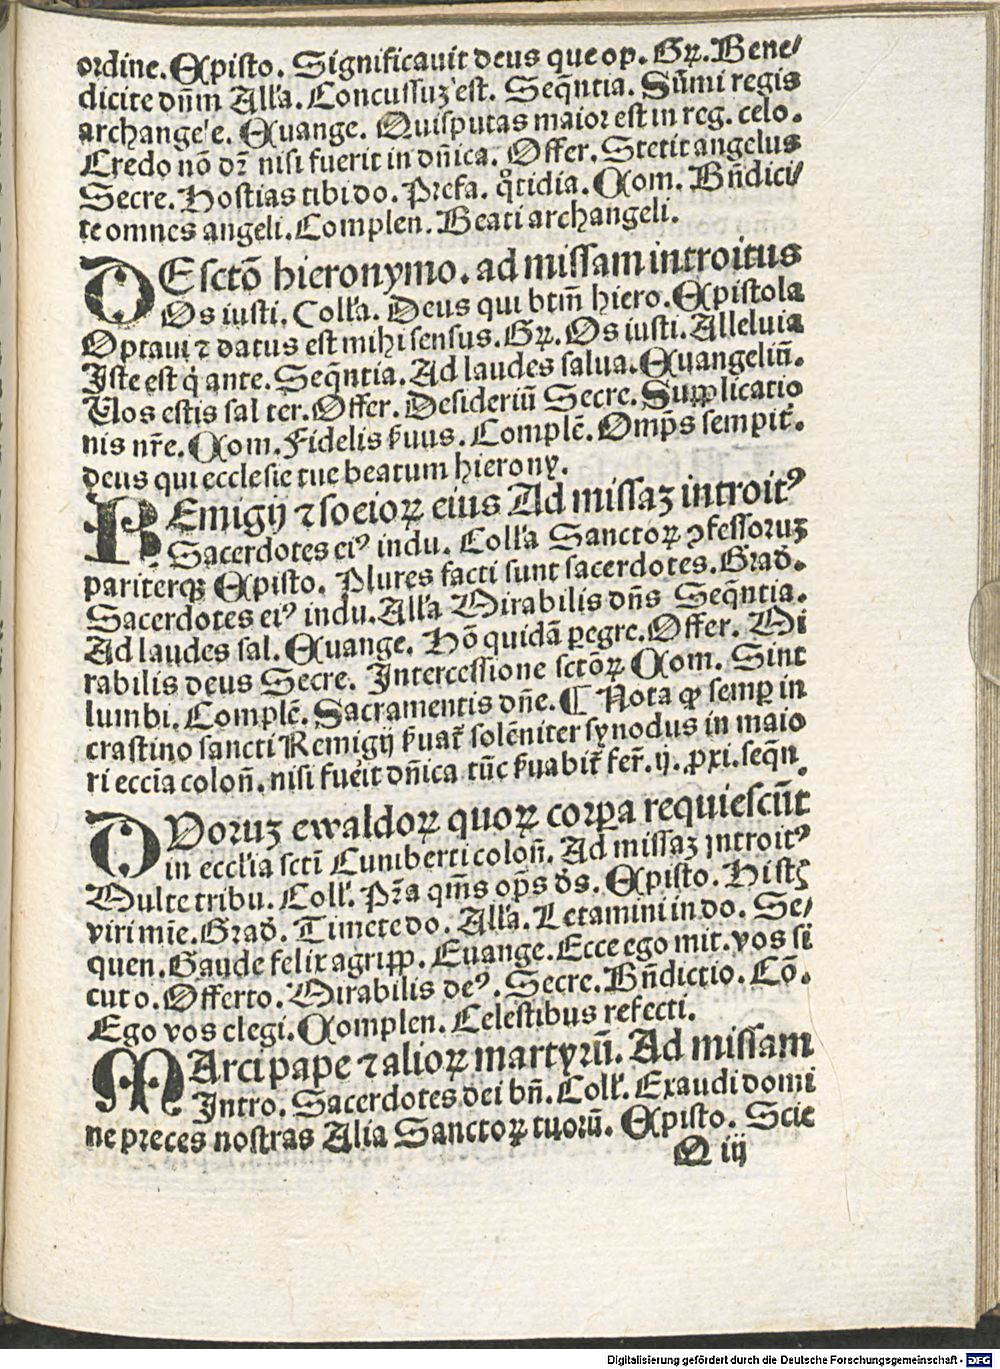 ordine. Episto. Significauit deus que op. Gꝝ. Bene⸗
dicite dn̄m All'a. Concussuꝫ est. Seqn̄tia. Sūmi regis
archange'e. Euange. Quis putas maior est in reg. celo.
Credo nō dr̄ nisi fuerit in dn̄ica. Offer. Stetit angelus
Secre. Hostias tibi do. Prefa. qͦtidia. Com. Bn̄dici⸗
te omnes angeli. Complen. Beati archangeli.
DE sctō hieronymo. ad missam introitus
Os iusti. Coll'a. Deus qui btm̄ hiero. Epistola
Optaui ⁊ datus est mihi sensus. Gꝝ. Os iusti. Alleluia
Iste est q̇ ante. Seqn̄tia. Ad laudes salua. Euangeliū.
Uos estis sal ter. Offer. Desideriū Secre. Supplicatio
nis nr̄e. Com. Fidelis ẜuus. Complē. Omp̄s sempit̄.
deus qui ecclesie tue beatum hierony.
REmigij ⁊ socioꝝ eius Ad missaꝫ introitꝰ
Sacerdotes eiꝰ indu. Coll'a Sanctoꝝ ꝯfessoruꝫ
pariterqꝫ Episto. Plures facti sunt sacerdotes. Grad̄.
Sacerdotes eiꝰ indu. All'a Mirabilis dn̄s Seqn̄tia.
Ad laudes sal. Euange. Hō quidā ꝑegre. Offer. Mi
rabilis deus Secre. Intercessione sctōꝝ Com. Sint
lumbi. Complē. Sacramentis dn̄e. ¶ Nota ꝙ semꝑ in
crastino sancti Remigij ẜuat̄ solēniter synodus in maio
ri eccīa colon̄. nisi fue̓it dn̄ica tūc ẜuabit̄ fer̄. ij. ꝓxi. seqn̄.
DUoruꝫ ewaldoꝝ quoꝝ corꝑa requiescūt
in eccl'ia sctī Cumberti colon̄. Ad missaꝫ introitꝰ
Multe tribu. Coll'. Pr̄a qm̄s op̄s ds̄. Episto. Hi stꝫ
viri mīe. Grad̄. Timete do. All'a. Letamini in do. Se⸗
quen. Gaude felix agripp. Euange. Ecce ego mit. vos si
cut o. Offerto. Mirabilis deꝰ. Secre. Bn̄dictio. Cō.
Ego vos elegi. Complen. Celestibus refecti.
MArci pape ⁊ alioꝝ martyrū. Ad missam
Intro. Sacerdotes dei bn̄. Coll'. Exaudi domi
ne preces nostras Alia Sanctoꝝ tuorū. Episto. Scie
Q iij
Digitalisierung gefördert durch die Deutsche Forschungsgemeinschaft - DFG